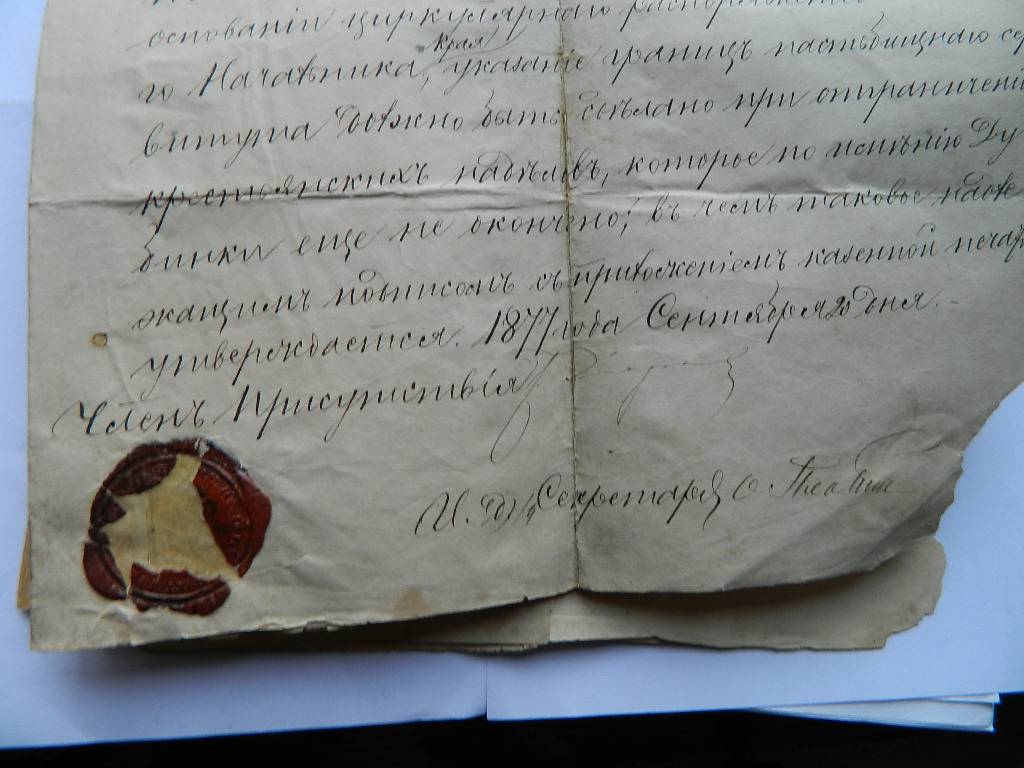 основаніи циркулярнаго распоряженія
края
го Начальника, указаніе границъ пастбищнаго сер
витута должно быть сдѣлано при отграниченіи
крестьянскихъ надѣловъ, которое по мнѣнію Ду
бинки еще не окончено; въ чемъ таковое надле
жащимъ подписомъ съ приложеніемъ казенной печати
утверждается. 1877 года Сентября 20 дня.
Членъ Присутствія
И. д. Секретаря